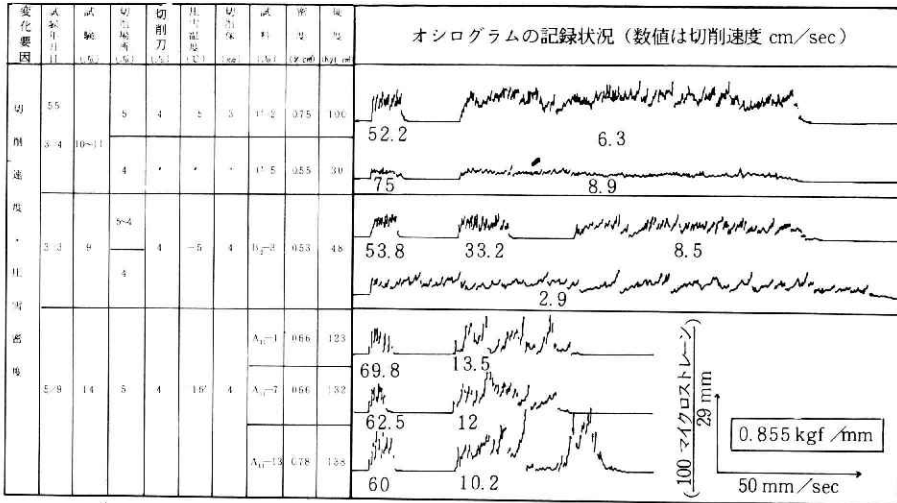 変化要因
試験年月日
試験
(No.)
切削場所
(No.)
切削刀
(No.)
圧雪温度
(℃)
切削深
試料
(No.)
密度
硬度
オシログラムの記録状況（数値は切削速度 cm/sec）
切削速度・圧雪密度
55
3/4
10~11
5
4
5
3
075
100
52.2
6.3
4
055
30
75
8.9
3/3
9
5~4
4
4
-5
4
053
48
53.8
33.2
8.5
2.9
5/9
14
5
4
4
066
123
69.8
13.5
066
132
62.5
12
078
138
60
10.2
(100 マイクロストレーン)
29 mm
0.855 kgf/mm
50 mm/sec